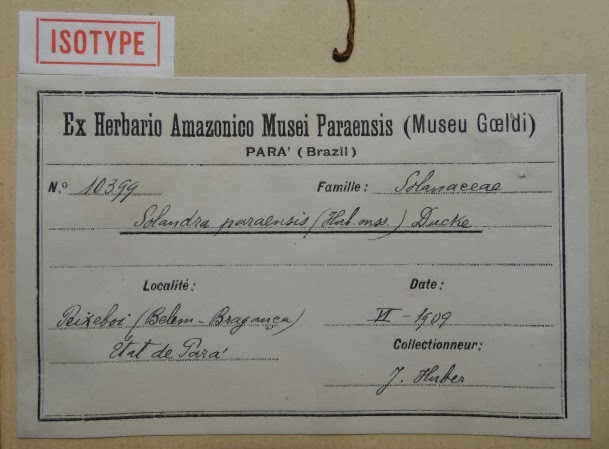 ISOTYPE
Ex Herbario Amazonico Musei Paraensis (Museu Gœldi)
PARA' (Brazil)
N.º 10399 Famille: Solanaceae
Solandra paraensis (Hub. mss.) Ducke
Localité: Date:
Peixeboi (Belem-Bragança) VI - 1909
Etat de Pará Collectionneur:
J. Huber